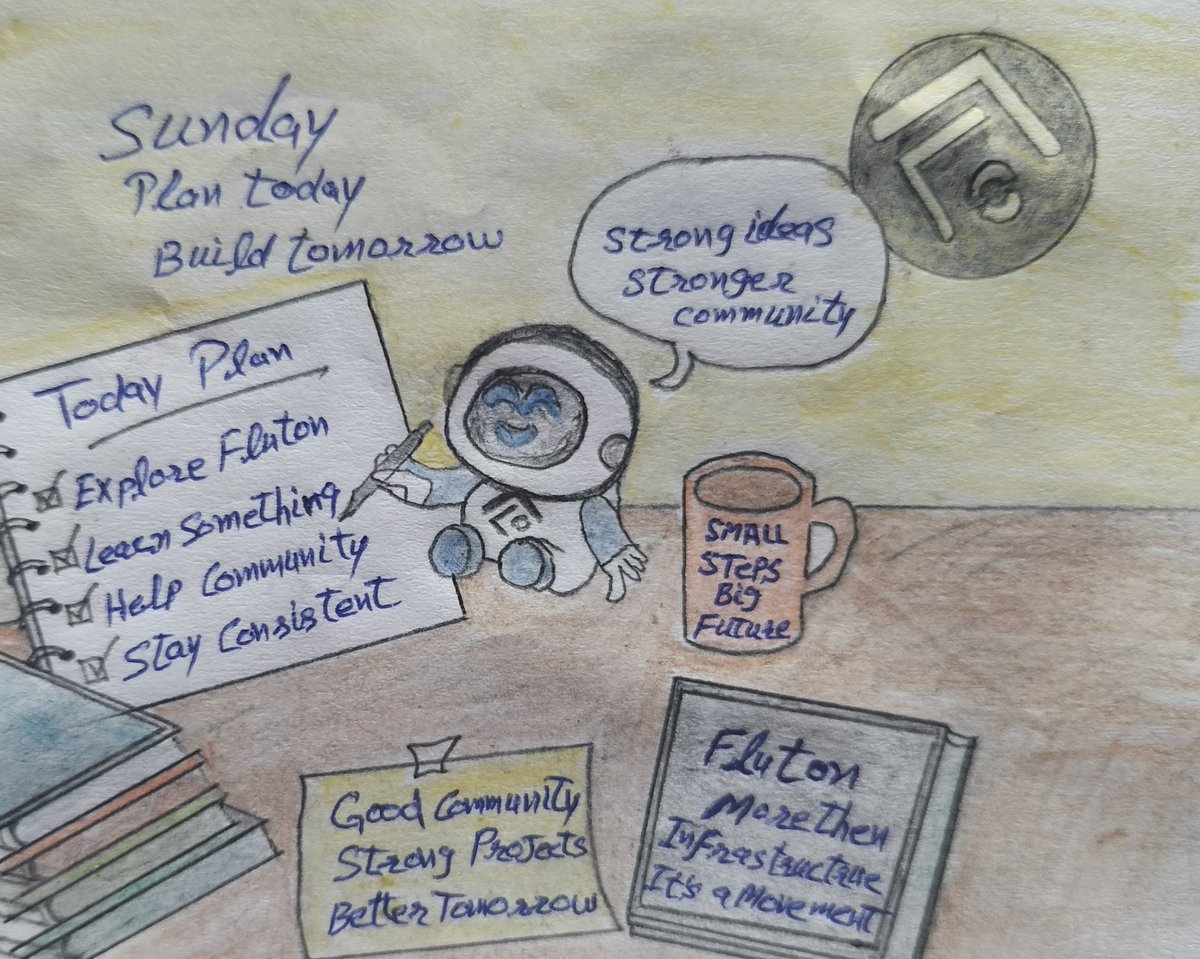 Sunday
Plan today
Build tomorrow
strong ideas
stronger
community
Today Plan
Explore Fluton
Learn Something
Help Community
Stay Consistent
SMALL
STEPS
Big
Future
Good Community
Strong Projects
Better Tomorrow
Fluton
More then
Infrastructrae
It's a Movement